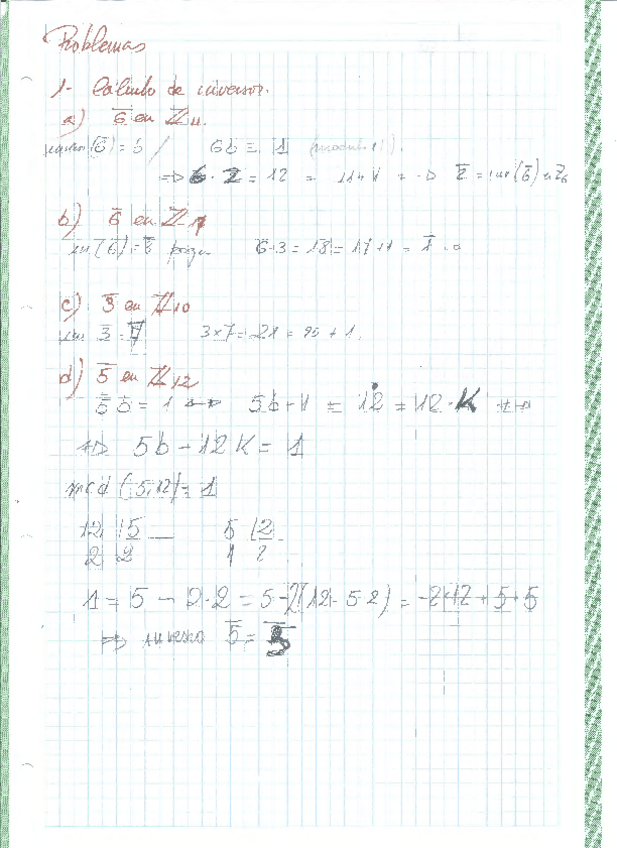 Problemas
1- Cálculo de inversos.
a) 6̅ en Z11.
(6̅) = b / 6b ≡ 1 (modulo 11).
=> 6 · 2 = 12 = 11+1 => 2̅ = inv(6̅) en Z
b) 6̅ en Z17
inv(6̅) = 3̅ porque 6·3 = 18 = 17+1 = 1̅
c) 3̅ en Z10
3̅ = 7̅ 3x7 = 21 = 20 + 1.
d) 5̅ en Z12
5̅ b̅ = 1 <=> 5b - 1 = 12 = 12·K <=>
<=> 5b - 12K = 1
mcd (5,12) = 1
12 |5 5 |2
2 2 1 2
1 = 5 - 2·2 = 5 - 2(12 - 5·2) = -2·12 + 5·5
=> inverso 5̅ = 5̅